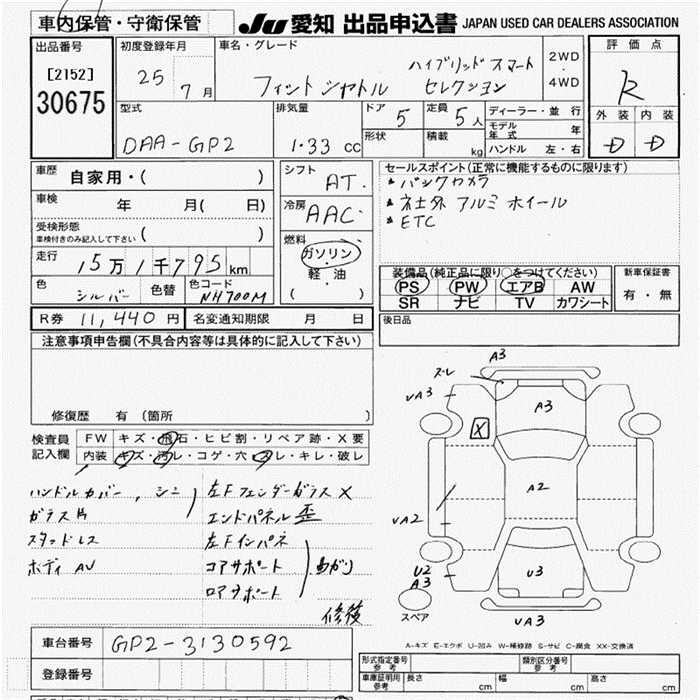 車内保管・守衛保管
JU 愛知 出品申込書 JAPAN USED CAR DEALERS ASSOCIATION
出品番号
[2152]
30675
初度登録年月
25 7月
車名・グレード
ハイブリッド スマート
フィットシャトル セレクション
2WD
・
4WD
評価点
R
外装 内装
D D
型式
DAA-GP2
排気量
1.33 cc
ドア 5
形状
定員 5人
積載 kg
ディーラー・並行
モデル年式 年
ハンドル 左・右
車歴
自家用・( )
車検 年 月( 日)
受検形態
車検付きのみ記入して下さい ( )
走行 15万1千795km
色 シルバー 色替 色コード NH700M
シフト AT.
冷房 AAC
燃料
ガソリン
軽油
( )
セールスポイント(正常に機能するものに限ります)
バックカメラ
社外 アルミ ホイール
ETC
装備品(純正品に限り○をつけてください)
PS PW エアB AW
SR ナビ TV カワシート
新車保証書
有・無
R券 11,440円 名変通知期限 月 日
後日品
注意事項申告欄(不具合内容等は具体的に記入して下さい)
修復歴 有(箇所 )
検査員記入欄
FW キズ・飛石・ヒビ割・リペア跡・X要
内装 キズ・汚レ・コゲ・穴・スレ・キレ・破レ
ハンドルカバー, シミ 左Fフェンダーガラス X
ガラス片 エンドパネル歪
スタッドレス 左Fインパネ
ボディ AU コアサポート 曲がり
ロアサポート
修後
A3
ズレ
VA3
A3
X
A2
VA2
U2
A3
U3
VA3
スペア
A-キズ E-エクボ U-凹み W-補修跡 S-サビ C-腐食 XX-交換済
車台番号 GP2-3130592
登録番号
形式指定番号 参考 類別区分番号 参考
車庫証明用 参考 長さ cm 幅 cm 高さ cm